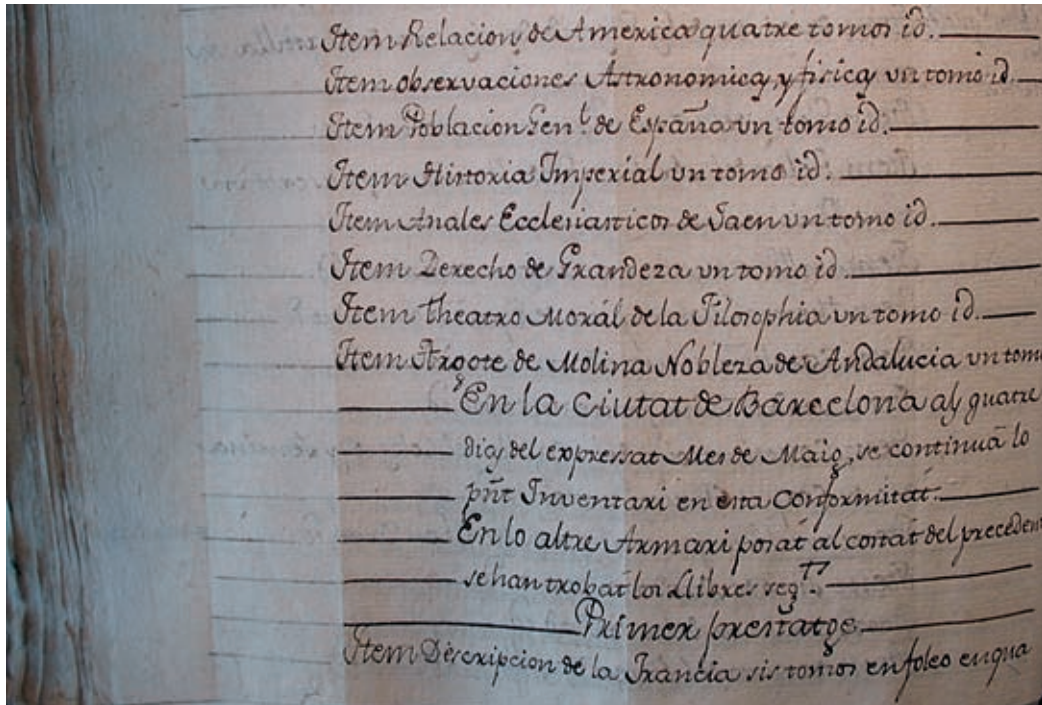 Item Relacion de America quatre tomos id.
Item observaciones Astronomicas, y fisicas un tomo id.
Item Poblacion Gen.l de España un tomo id.
Item Historia Imperial un tomo id.
Item Anales Ecclesiasticos de Jaen un tomo id.
Item Derecho de Grandeza un tomo id.
Item theatro Morál de la Filosophia un tomo id.
Item Argote de Molina Nobleza de Andalucia un tomo
En la Ciutat de Barcelona als quatre
dias del expressat Mes de Maig, se continuá lo
pñt Inventari en esta Conformitát.
En lo altre Armari posát al costát del precedent
se han trobat los Llibres seg.ts
Primer prestatge
Item Descripcion de la Francia sis tomos en foleo en qua